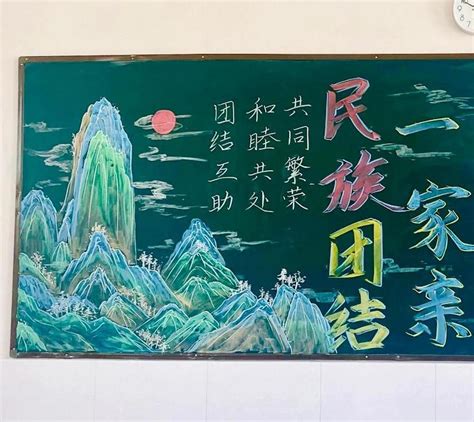 团结互助
和睦共处
共同繁荣
民族团结
一家亲